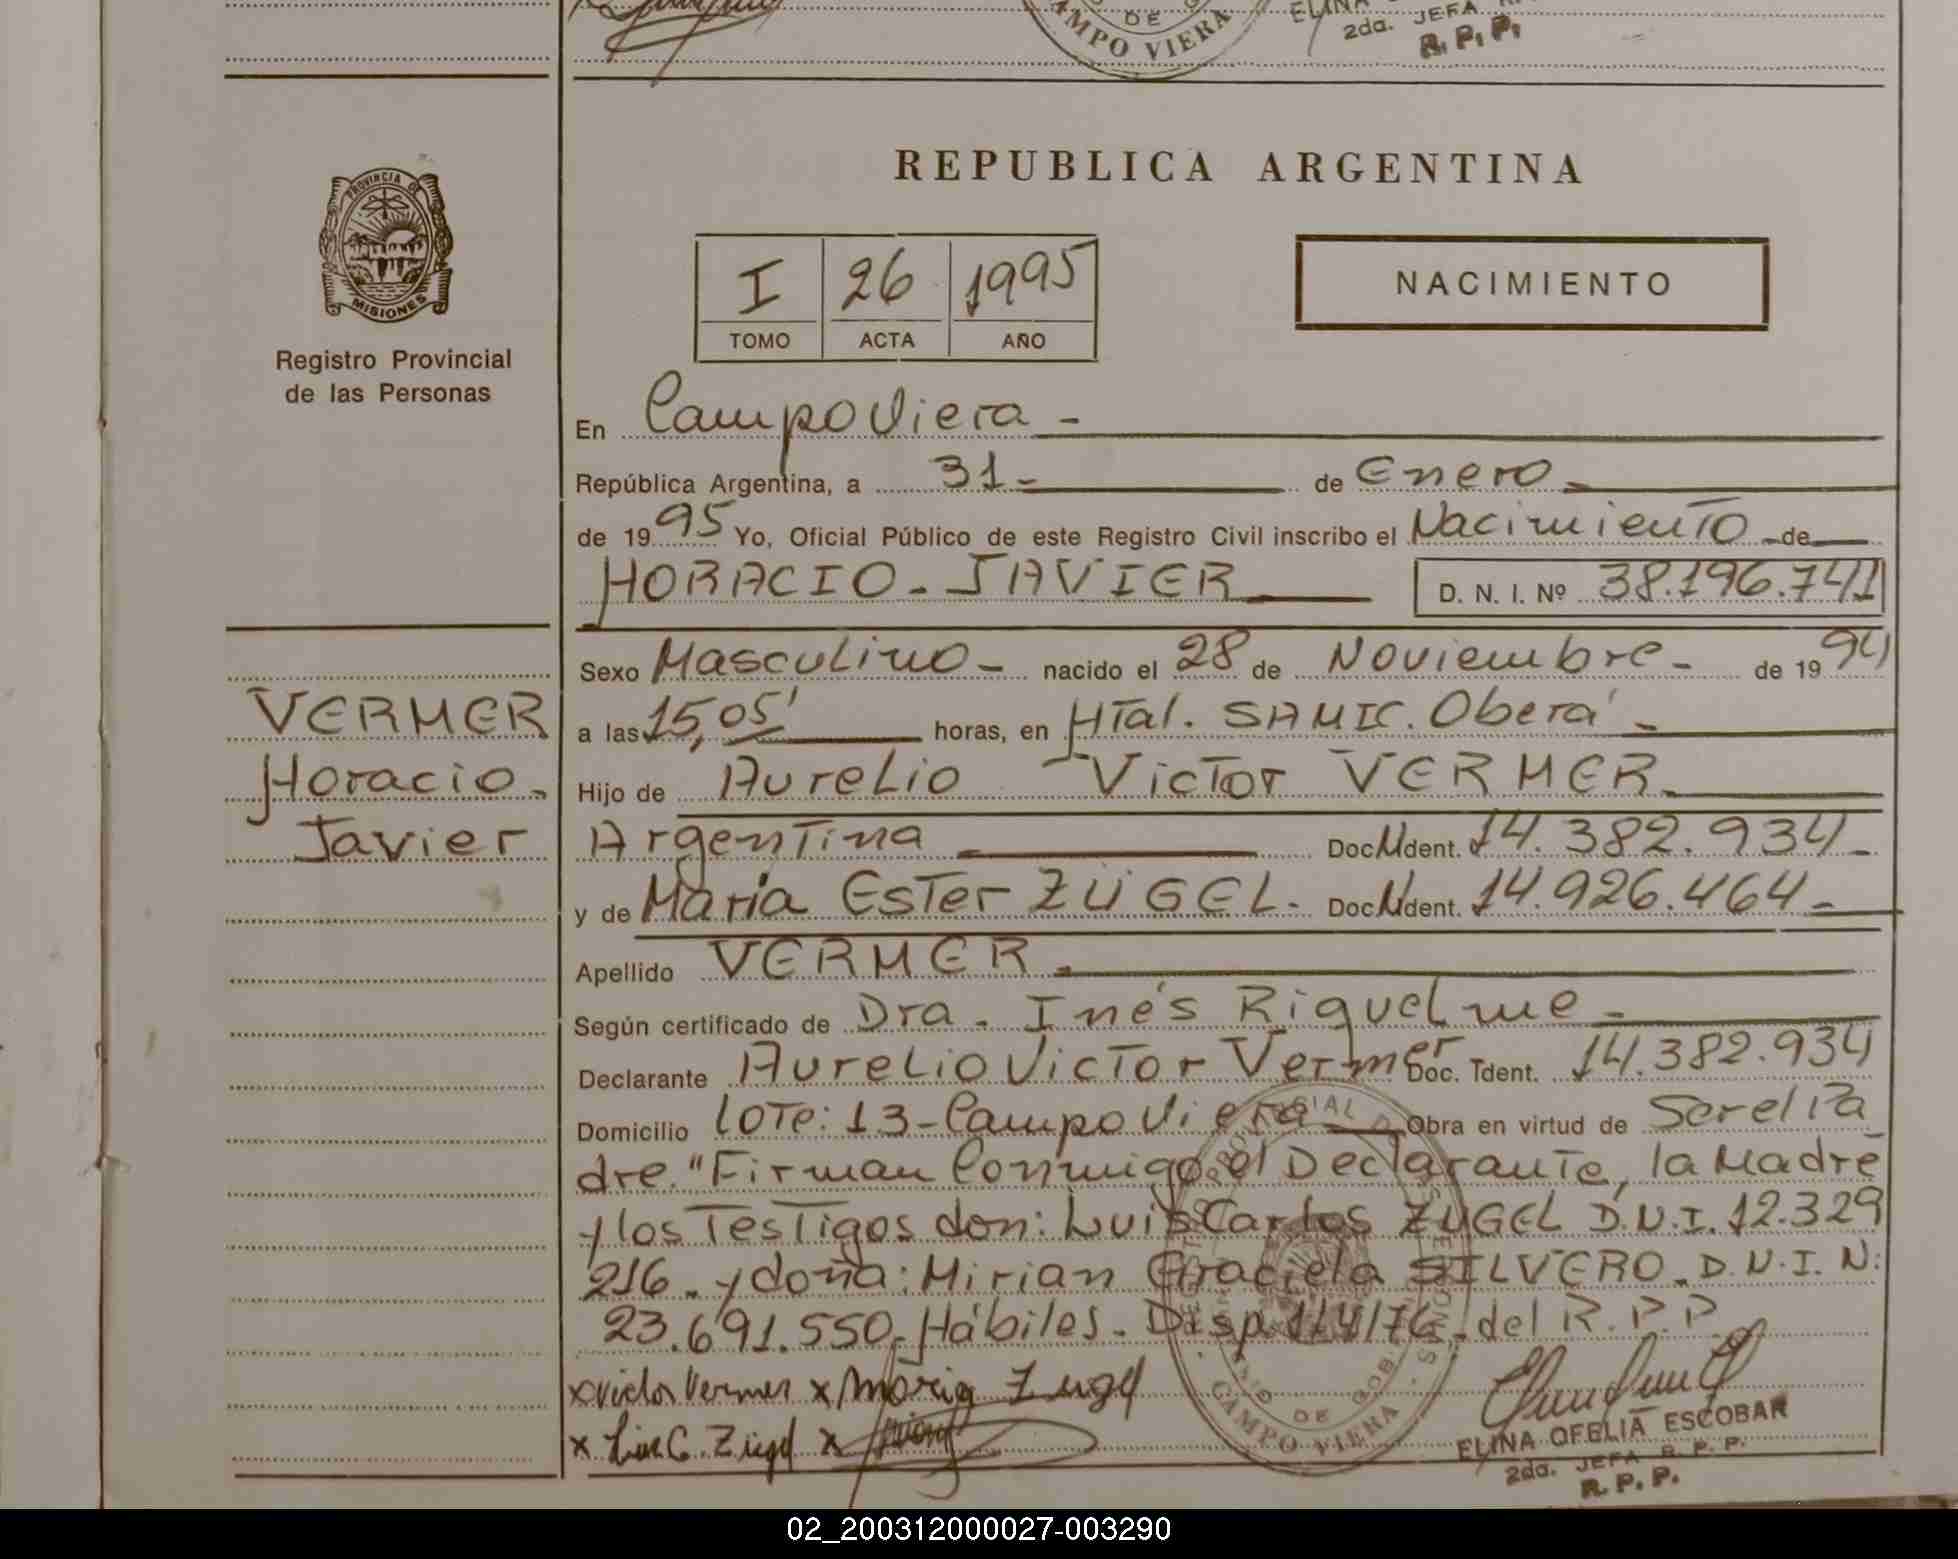 AMPO VIERA
DE
ELINA
2da. JEFA
R. P. P.
PROVINCIA DE
MISIONES
Registro Provincial
de las Personas
REPUBLICA ARGENTINA
I 26 1995
TOMO ACTA AÑO
NACIMIENTO
En Campo Viera -
República Argentina, a 31- de Enero -
de 19 95 Yo, Oficial Público de este Registro Civil inscribo el Nacimiento de
HORACIO - JAVIER D. N. I. Nº 38.196.741
VERMER
Horacio -
Javier
Sexo Masculino - nacido el 28 de Noviembre - de 19 94
a las 15,05' horas, en HTal. SAMIC. Oberá -
Hijo de Aurelio Victor VERMER -
Argentina Doc. Ident. 14.382.934 -
y de María Ester ZÜGEL - Doc. Ident. 14.926.464 -
Apellido VERMER -
Según certificado de Dra. Inés Riquelme -
Declarante Aurelio Victor Vermer Doc. Ident. 14.382.934
Domicilio Lote: 13 - Campo Viera Obra en virtud de Ser el Pa
dre. "Firman Conmigo el Declarante, la Madre
y los Testigos don: Luis Carlos ZUGEL D.N.I. 12.329
216 - y doña: Mirian Graciela SILVERO - D.N.I. N:
23.691.550 - Hábiles - Disp. 1/4/76 - del R.P.P.
x Victor Vermer x Maria Zugel
x Luis C. Zügel x
CAMPO VIERA
DE GOB.
ELINA OFELIA ESCOBAR
2da. JEFA R. P. P.
R. P. P.
02_200312000027-003290